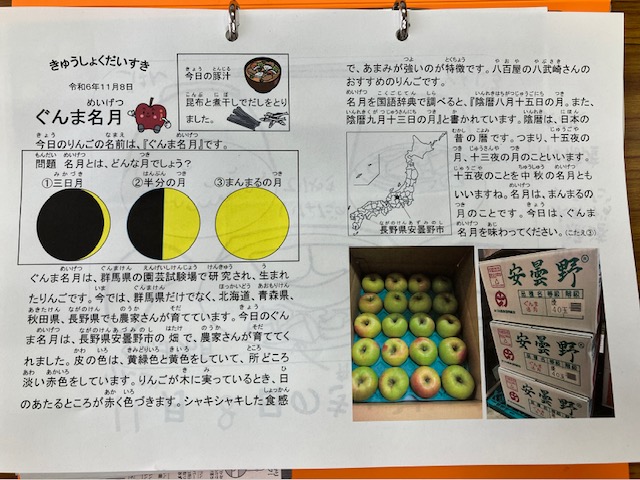 きゅうしょくだいすき
令和6年11月8日
ぐんま名月
今日の豚汁
昆布と煮干しでだしをとり
ました。
今日のりんごの名前は、『ぐんま名月』です。
問題 名月とは、どんな月でしょう?
①三日月 ②半分の月 ③まんまるの月
ぐんま名月は、群馬県の園芸試験場で研究され、生まれ
たりんごです。今では、群馬県だけでなく、北海道、青森県、
秋田県、長野県でも農家さんが育てています。今日のぐん
ま名月は、長野県安曇野市の畑で、農家さんが育ててく
れました。皮の色は、黄緑色と黄色をしていて、所どころ
淡い赤色をしています。りんごが木に実っているとき、日
のあたるところが赤く色づきます。シャキシャキした食感
で、あまみが強いのが特徴です。八百屋の八武崎さんの
おすすめのりんごです。
名月を国語辞典で調べると、『陰暦八月十五日の月。また、
陰暦九月十三日の月』と書かれています。陰暦は、日本の
昔の暦です。つまり、十五夜の
月、十三夜の月のことといいます。
十五夜のことを中秋の名月とも
いいますね。名月は、まんまるの
月のことです。今日は、ぐんま
名月を味わってください。(こたえ③)
長野県安曇野市
安曇野
安曇野
安曇野